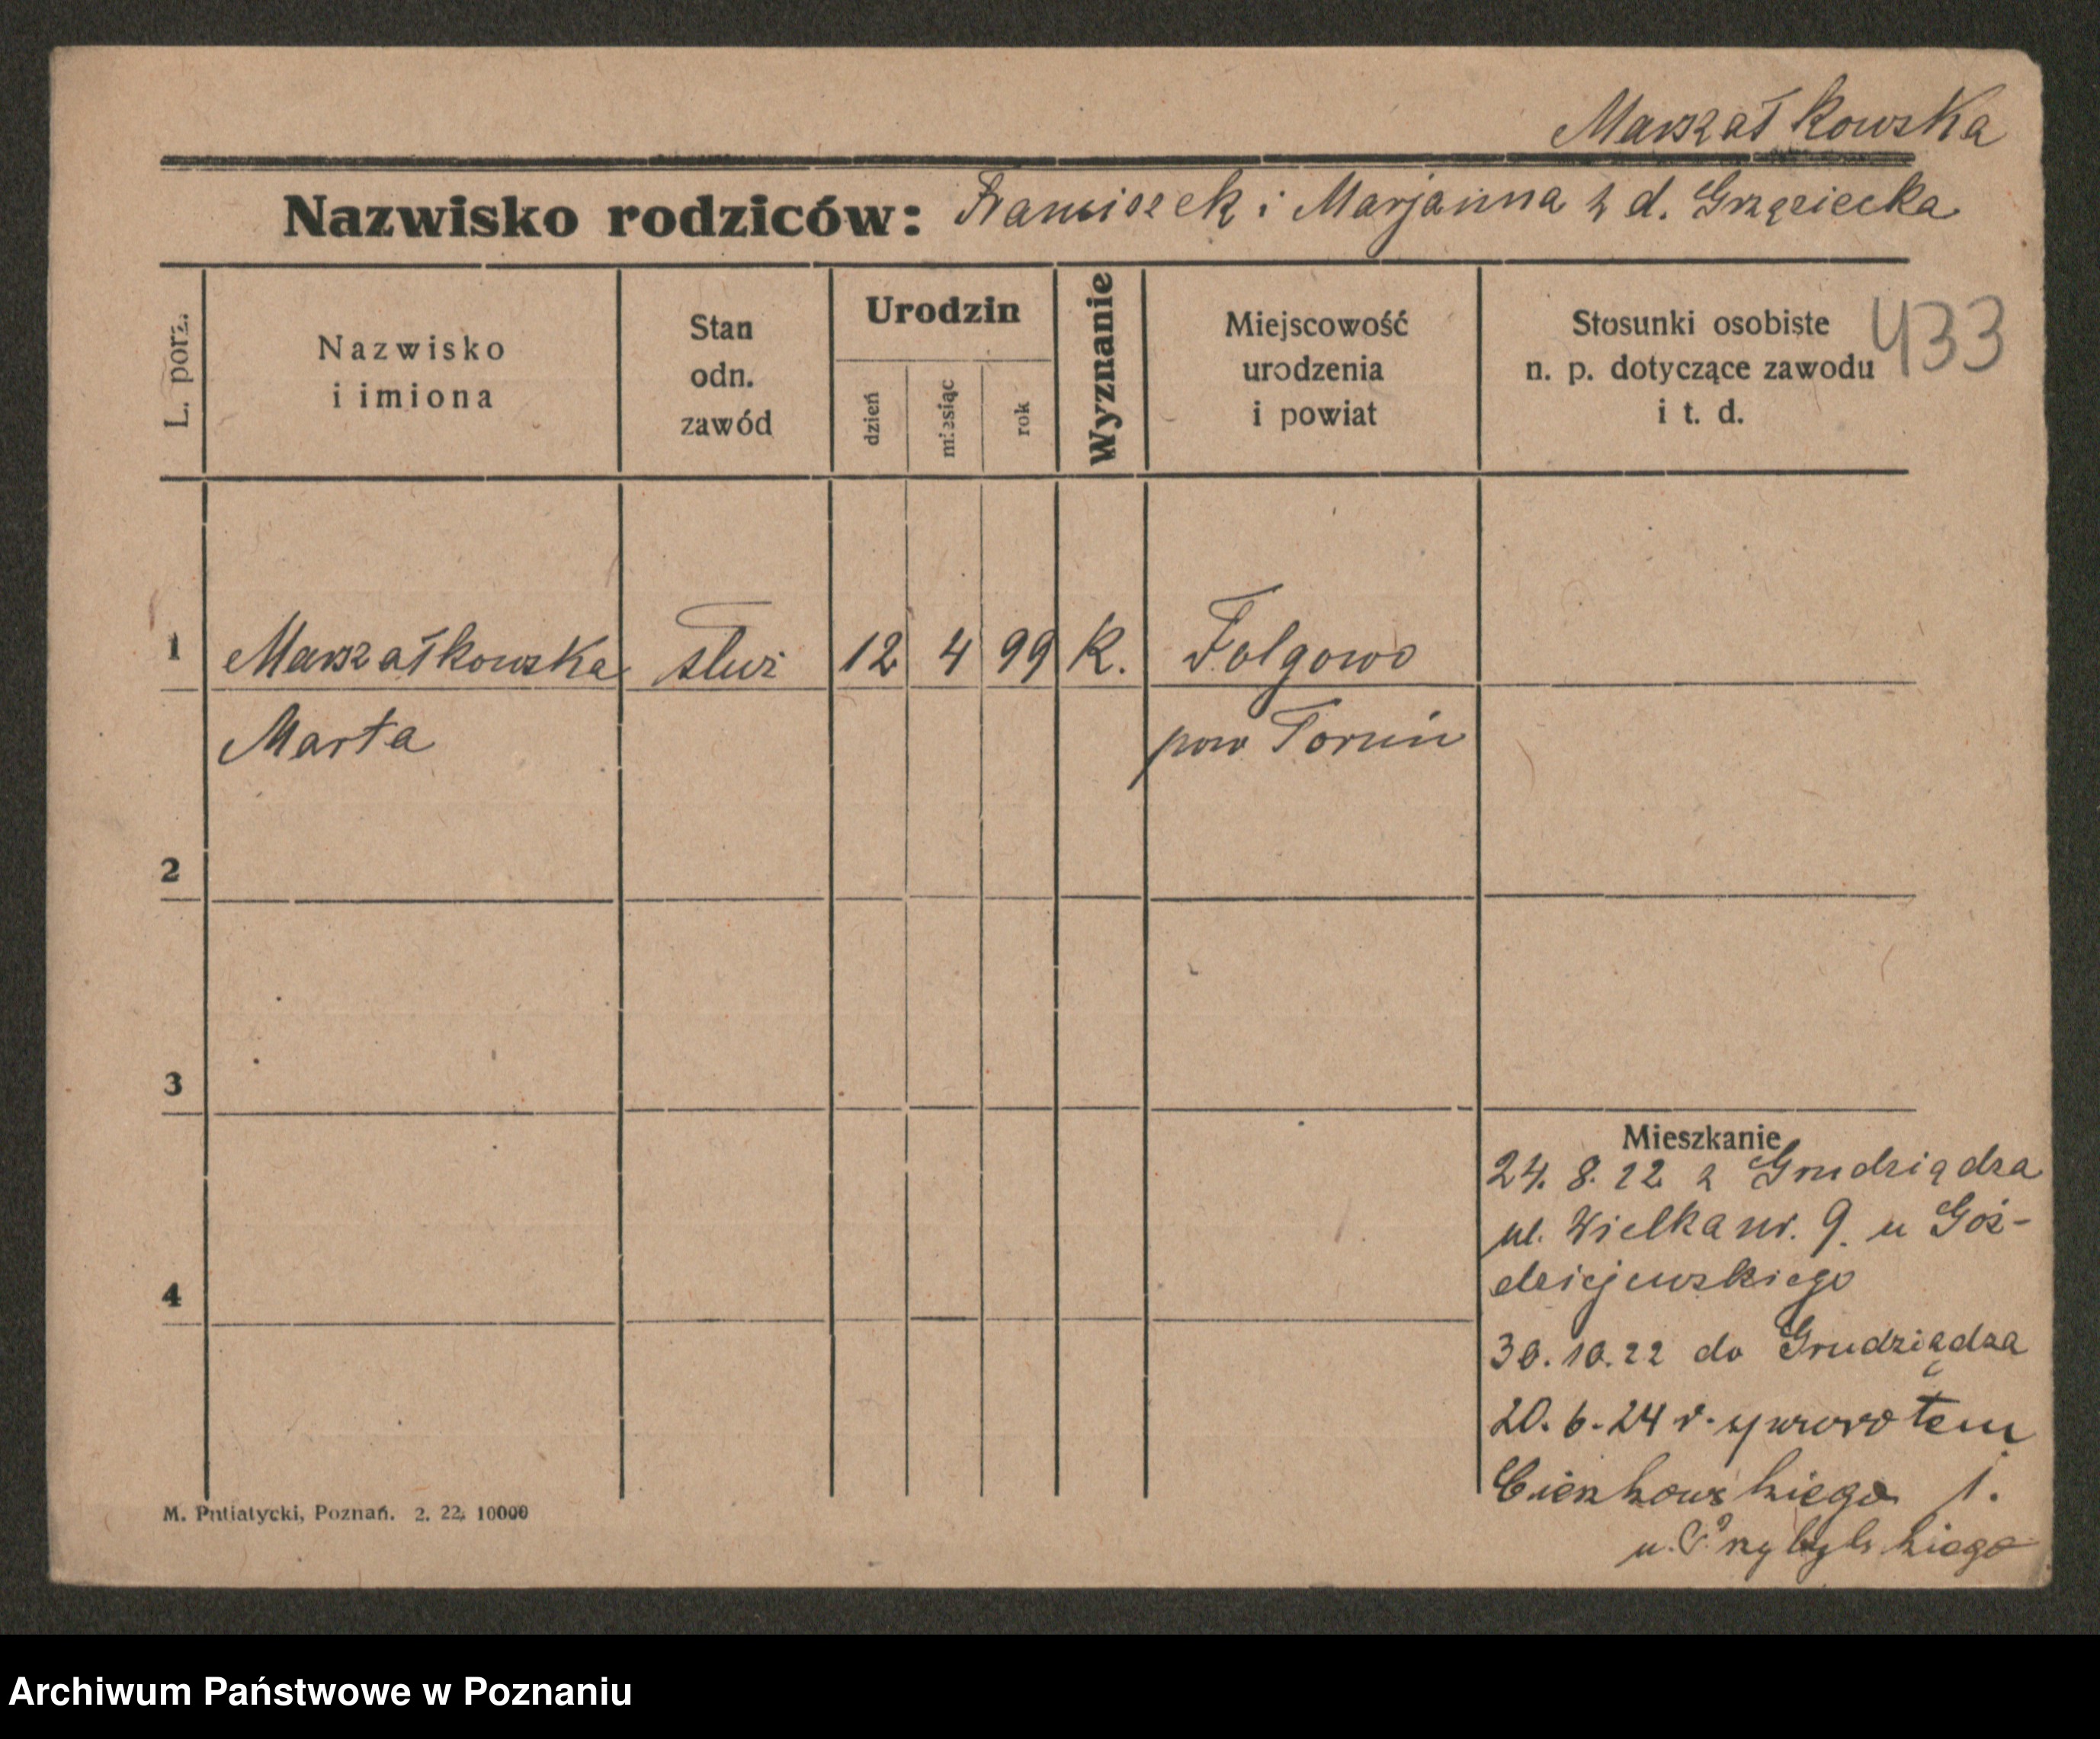 Marszałkowska
Nazwisko rodziców: Franciszek i Marjanna z d. Grzęziecka
L. porz.
Nazwisko
i imiona
Stan
odn.
zawód
Urodzin
dzień
miesiąc
rok
Wyznanie
Miejscowość
urodzenia
i powiat
Stosunki osobiste
n. p. dotyczące zawodu
i t. d.
433
1 Marszałkowska służ 12 4 99 K. Folgowo
Marta pow Toruń
2
3
4
Mieszkanie
24. 8. 22 z Grudziądza
ul. Wielka nr. 9. u Goż-
dziejewskiego
30. 10. 22 do Grudziądza
20. 6. 24 r.
1.
u. Przybylskiego
M. Putiatycki, Poznań. 2. 22. 10000
Archiwum Państwowe w Poznaniu